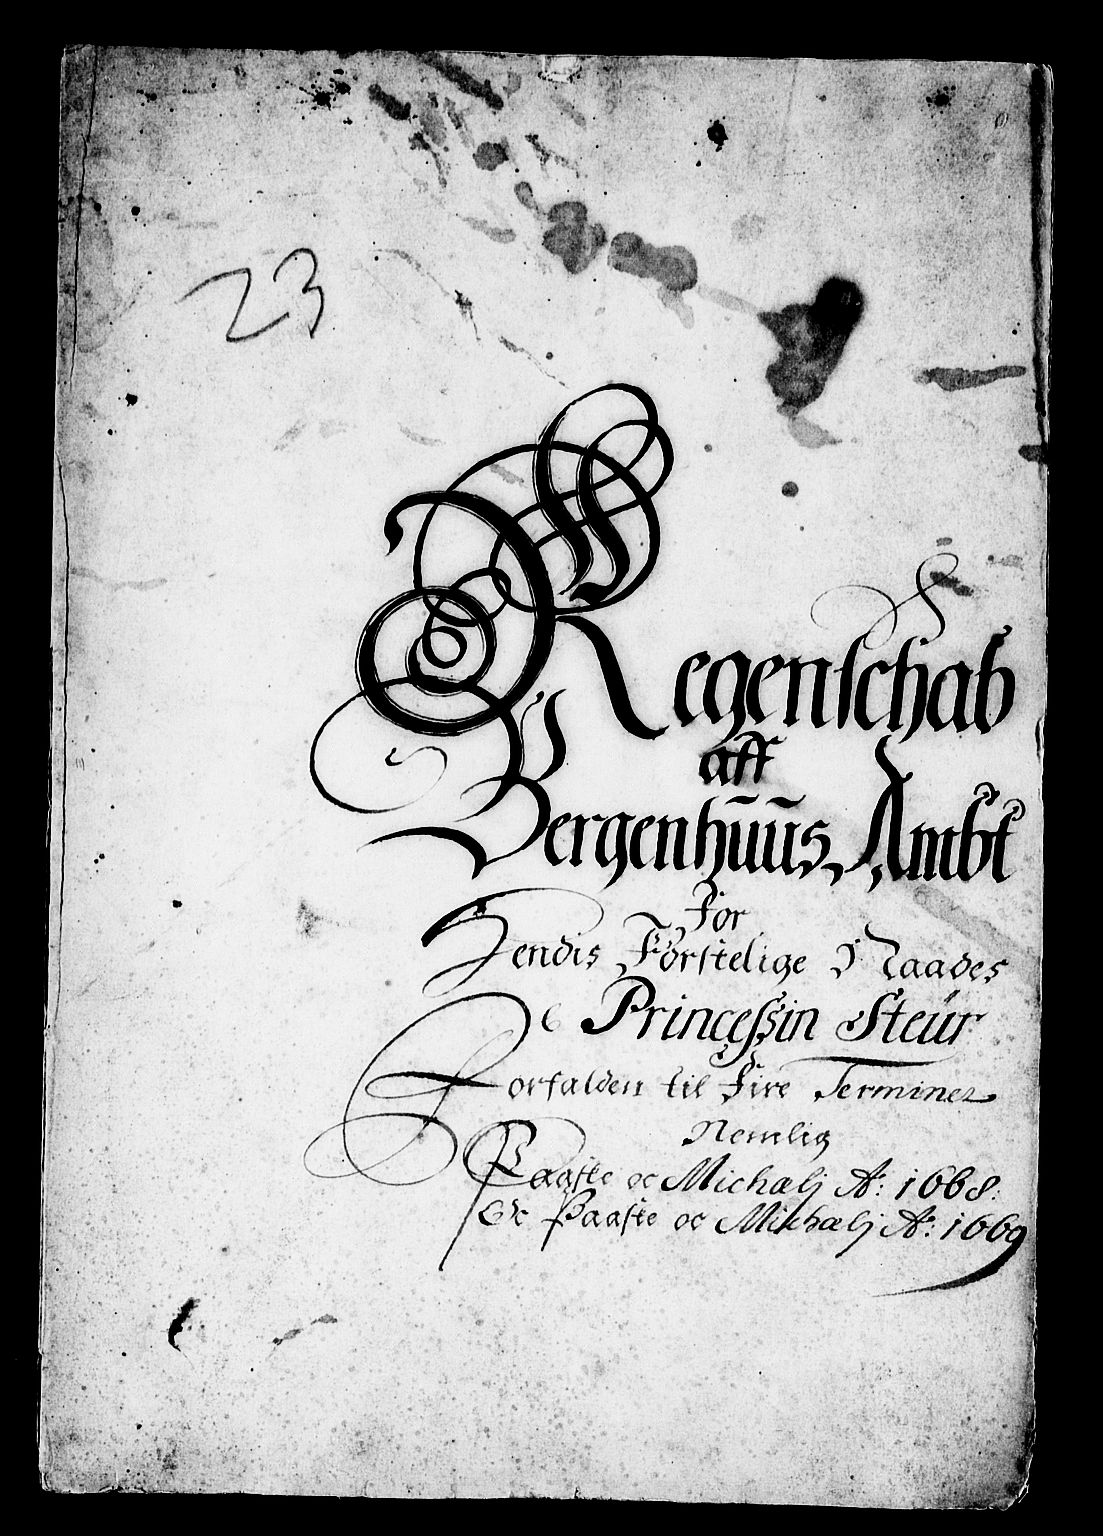 23
Regenschab
aff
Bergenhuus Ambt
For
Hendis Förstelige Naades
Princessin Steur
Forfalden til Fire Terminer
Nemlig
Paaske oc Michælj Aº: 1668.
Oc Paaske oc Michælj Aº: 1669